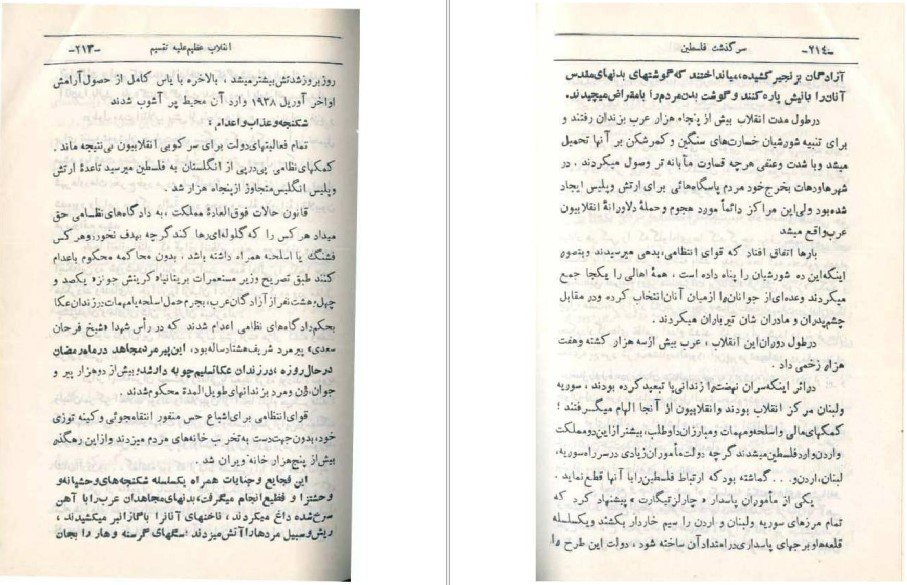 انقلاب عظیم علیه تقسیم -۲۱۳-
روز بروز شدتش بیشتر میشد ، بالاخره با یاس کامل از حصول آرامش
اواخر آوریل ۱۹۳۸ وارد آن محیط پر آشوب شدند
شکنجه و عذاب و اعدام :
تمام فعالیتهای دولت برای سرکوبی انقلابیون بی‌نتیجه ماند .
کمکهای نظامی پی‌در پی از انگلستان به فلسطین میرسید تا عدهٔ ارتش
و پلیس انگلیس متجاوز از پنجاه هزار شد .
قانون حالات فوق‌العادهٔ مملکت ، به دادگاه‌های نظامی حق
میداد هر کس را که گلوله‌ای رها کند گرچه بهدف نخورد و هر کس
فشنگ یا اسلحه همراه داشته باشد ، بدون محاکمه محکوم باعدام
کنند طبق تصریح وزیر مستعمرات بریتانیا« کریتش جونز» یکصد و
چهل و هشت نفر از آزادگان عرب ، بجرم حمل اسلحه یا مهمات در زندان عکا
بحکم دادگاه‌های نظامی اعدام شدند که در رأس شهدا «شیخ فرحان
سعدی» پیرمرد شریف هشتاد ساله بود ، این پیرمرد مجاهد در ماه رمضان
در حال روزه ، در زندان عکا تسلیم چوبه دار شد، و بیش از دو هزار پیر و
جوان، زن و مرد بزندانهای طویل المدة محکوم شدند .
قوای انتظامی برای اشباع حس منفور انتقامجوئی و کینه توزی
خود ، بدون جهت دست به تخریب خانه‌های مردم میزدند و از این رهگذر
بیش از پنج هزار خانه ویران شد .
این فجایع و جنایات همراه یکسلسله شکنجه‌های وحشیانه و
وحشتزا و فظیع انجام میگرفت، بدنهای مجاهدان عرب را با آهن
سرخ شده داغ میکردند ، ناخنهای آنانرا با گاز انبر میکشیدند ،
ریش و سبیل مردها را آتش میزدند ، سگهای گرسنه و هار را بجان
-۲۱۴- سرگذشت فلسطین
آزادگان بزنجیر کشیده، میانداختند که گوشتهای بدنهای مقدس
آنان را با نیش پاره کنند و گوشت بدن مردم را با مقراض میچیدند.
در طول مدت انقلاب بیش از پنجاه هزار عرب بزندان رفتند و
برای تنبیه شورشیان خسارت‌های سنگین و کمرشکن بر آنها تحمیل
میشد و با شدت و عنفی هرچه قساوت مآبانه تر وصول میکردند . در
شهرها و دهات بخرج خود مردم پاسگاه‌هائی برای ارتش و پلیس ایجاد
شده بود ولی این مراکز دائماً مورد هجوم و حملهٔ دلاورانهٔ انقلابیون
عرب واقع میشد
بارها اتفاق افتاد که قوای انتظامی، بدهی میرسیدند و بتصور
اینکه این ده شورشیان را پناه داده است ، همهٔ اهالی را یکجا جمع
میکردند و عده‌ای از جوانان را از میان آنان انتخاب کرده و در مقابل
چشم پدران و مادران شان تیر باران میکردند .
در طول دوران این انقلاب ، عرب بیش از سه هزار کشته و هفت
هزار زخمی داد .
در اثر اینکه سران نهضت را زندانی یا تبعید کرده بودند ، سوریه
و لبنان مرکز انقلاب بودند و انقلابیون از آنجا الهام میگرفتند ؛
کمکهای مالی و اسلحه و مهمات و مبارزان داوطلب، بیشتر از این دو مملکت
و اردن وارد فلسطین میشدند گرچه دولت مأموران زیادی در سر راه سوریه،
لبنان، اردن و . . . گماشته بود که ارتباط فلسطین را با آنها قطع نماید .
یکی از مأموران پاسدار « چارلز تیگارت » پیشنهاد کرد که
تمام مرزهای سوریه و لبنان و اردن را سیم خاردار بکشند و یکسلسله
قلعه‌ها و برجهای پاسداری در امتداد آن ساخته شود ، دولت این طرح را